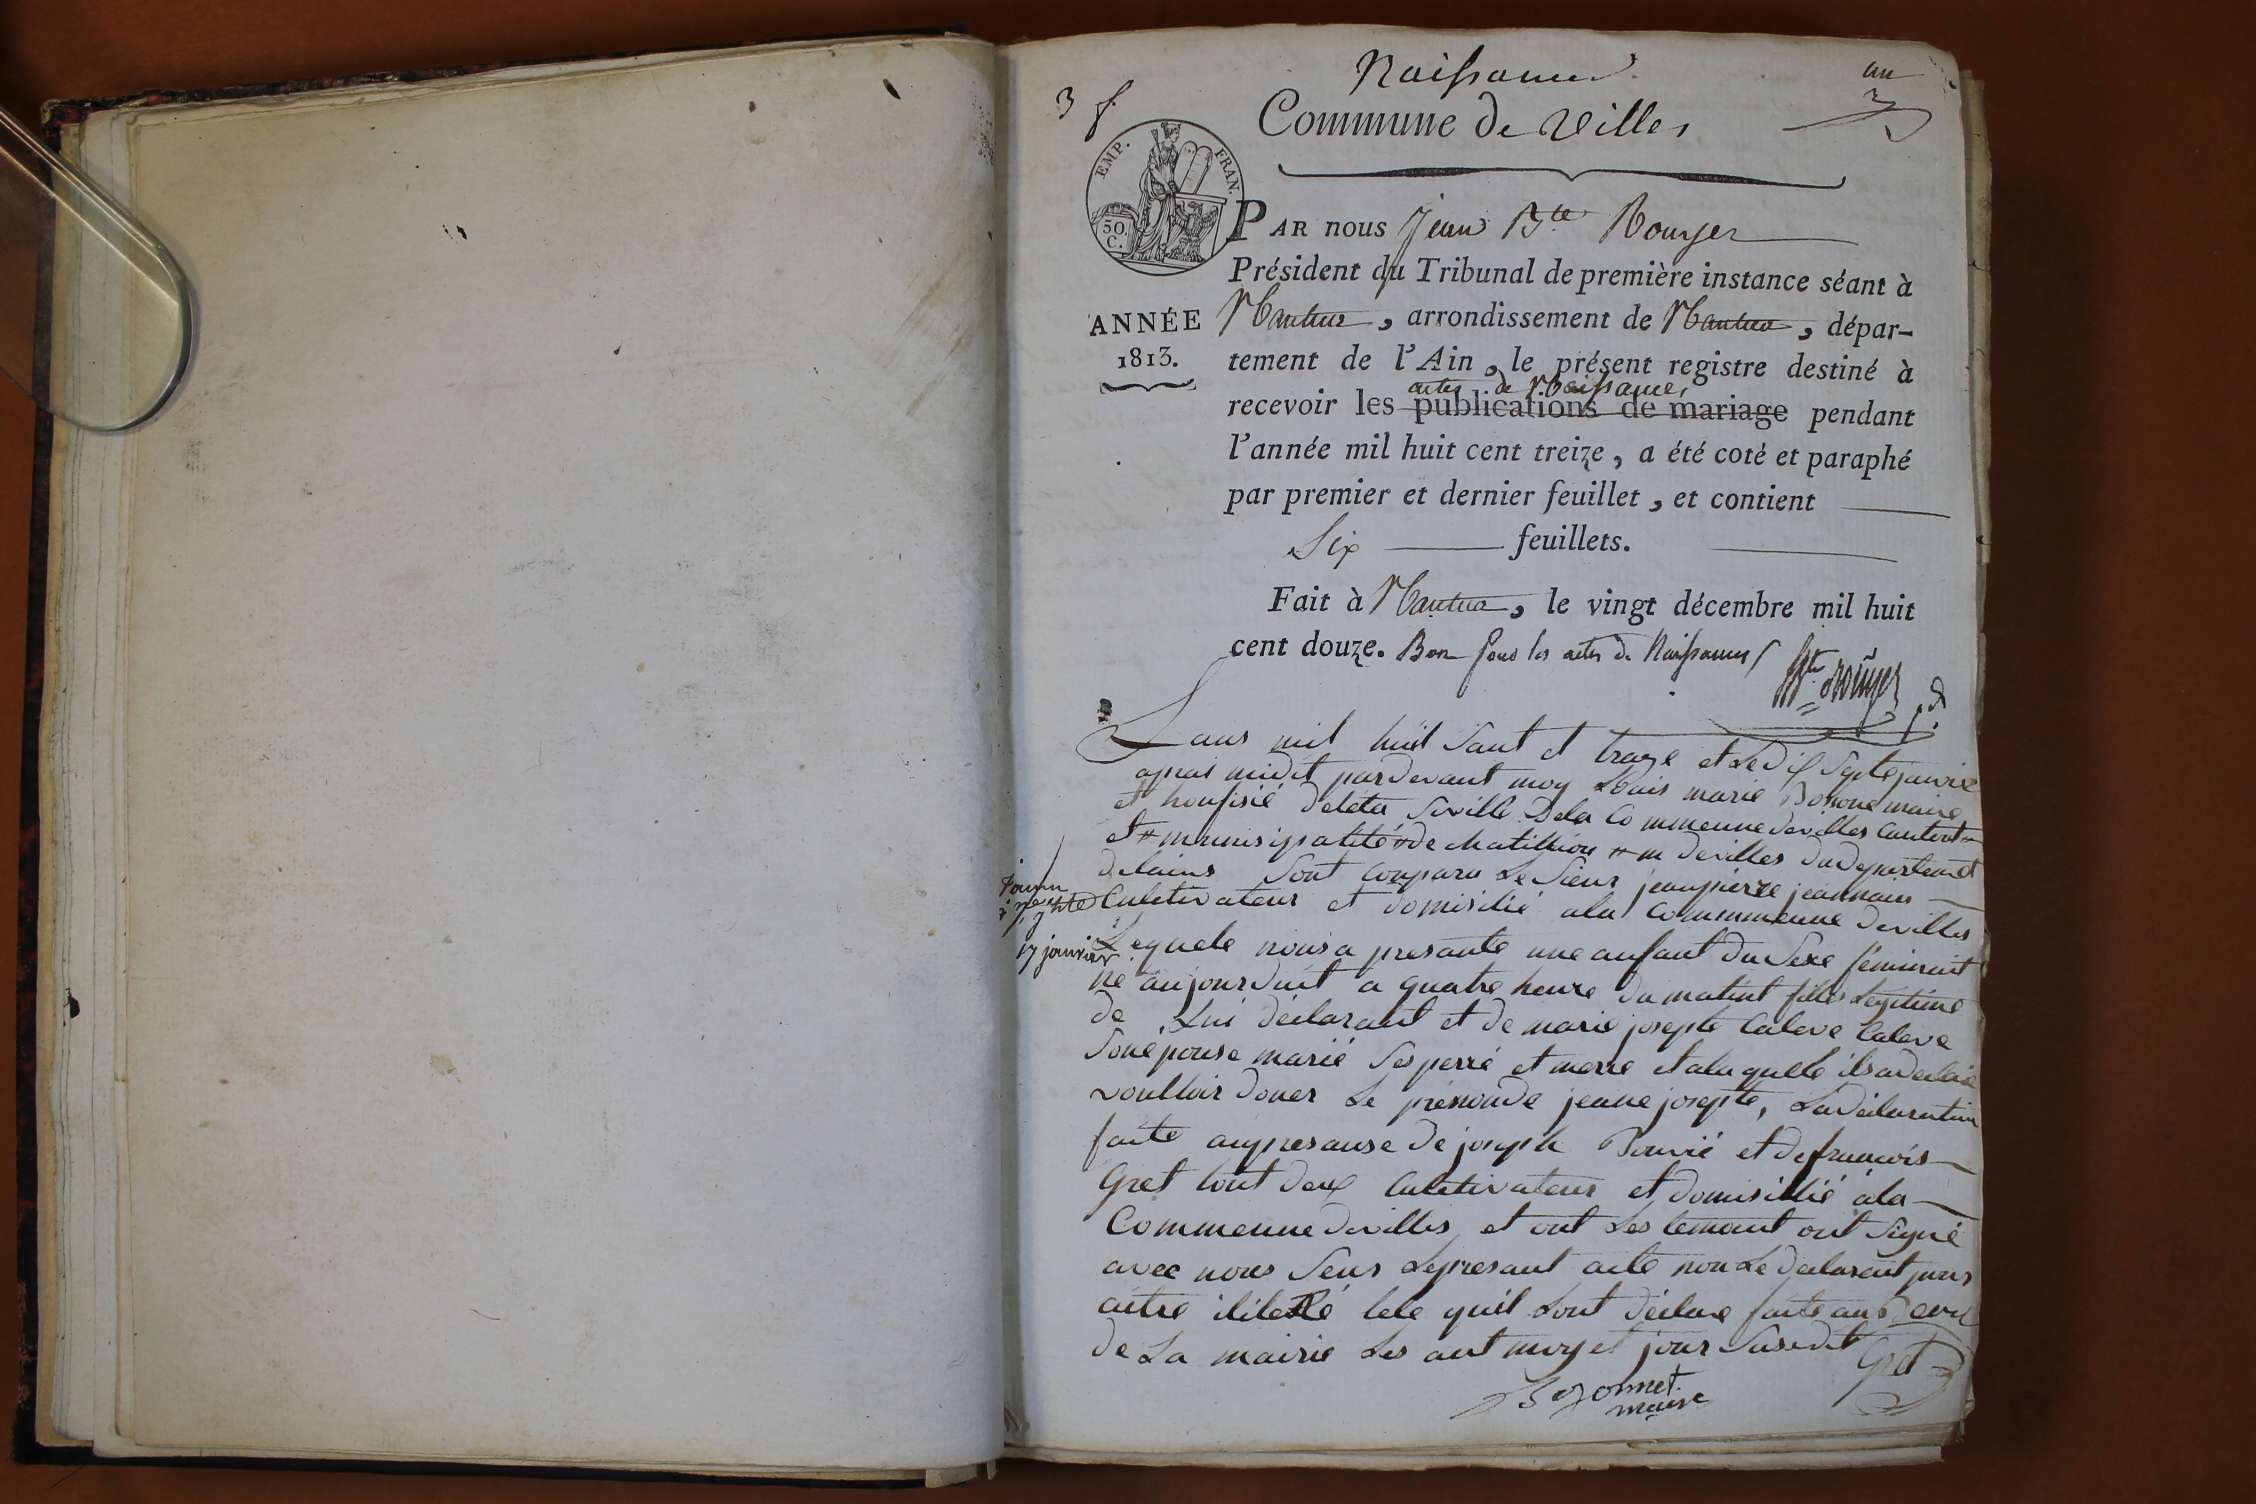 Naissances
3 f
Commune de Villes
EMP. FRAN.
30. C.
PAR nous Jean Bte Rouyer
Président du Tribunal de première instance séant à
ANNÉE
1813.
Nantua, arrondissement de Nantua, dépar-
tement de l'Ain, le présent registre destiné à
actes de Naissances
recevoir les publications de mariage pendant
l'année mil huit cent treize, a été coté et paraphé
par premier et dernier feuillet, et contient
Six feuillets.
Fait à Nantua, le vingt décembre mil huit
cent douze. Bon pour les actes de Naissances
Bte Rouyer
Lans mil huit sant et traze et le dix septe janvié
apras midit pardevant moy Louis marie Bosone maire
et houfisié deleta siville dela Commeune devilles Cantont
et munisipalité de chatillion devilles du departemet
delains sont conparu le sieur jeanpierre jeannain
Culetivateur et domisilié ala Commmeune devilles
17 janvier
Lequele nous a presante une anfant du sexe féminint
né aujourduit a quatre heure du matint fille legitime
de lui déclarant et de marie josepte Calave Calave
sonepouse marié ses perré et merre et ala quelle ils a declaré
voulloir doner le prénom de jeane josepte, la déclaration
faite anpresanse de joseph Bouvié et de francois
Gret tout deux Culetivateur et domisillié ala
Commeune devilles et ont les temoint ont signé
avec nous sens lepresant acte non le declarant pour
aitre ileteré tele quil lont déclare faite aux
de la mairie les ant moy et jour susedit
Gret
Bozonnet
maire